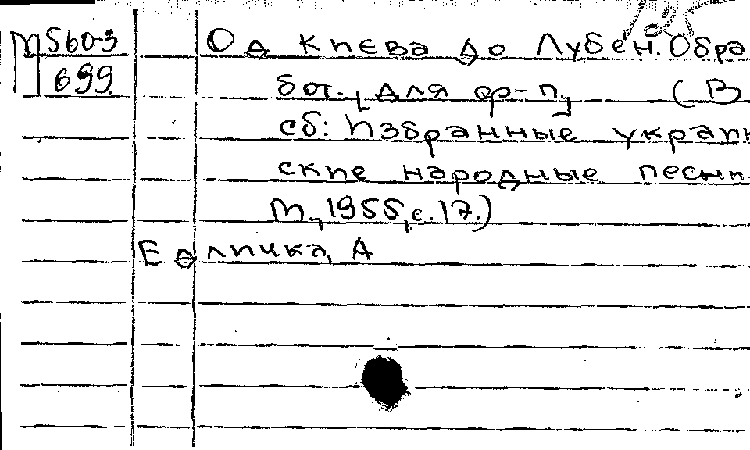 М560-3 Од Києва до Лубен. Обра
699 бот. для ф-п. (В
сб: Избранные украин
ские народные песни
М., 1955, с. 17.)
Едличка, А